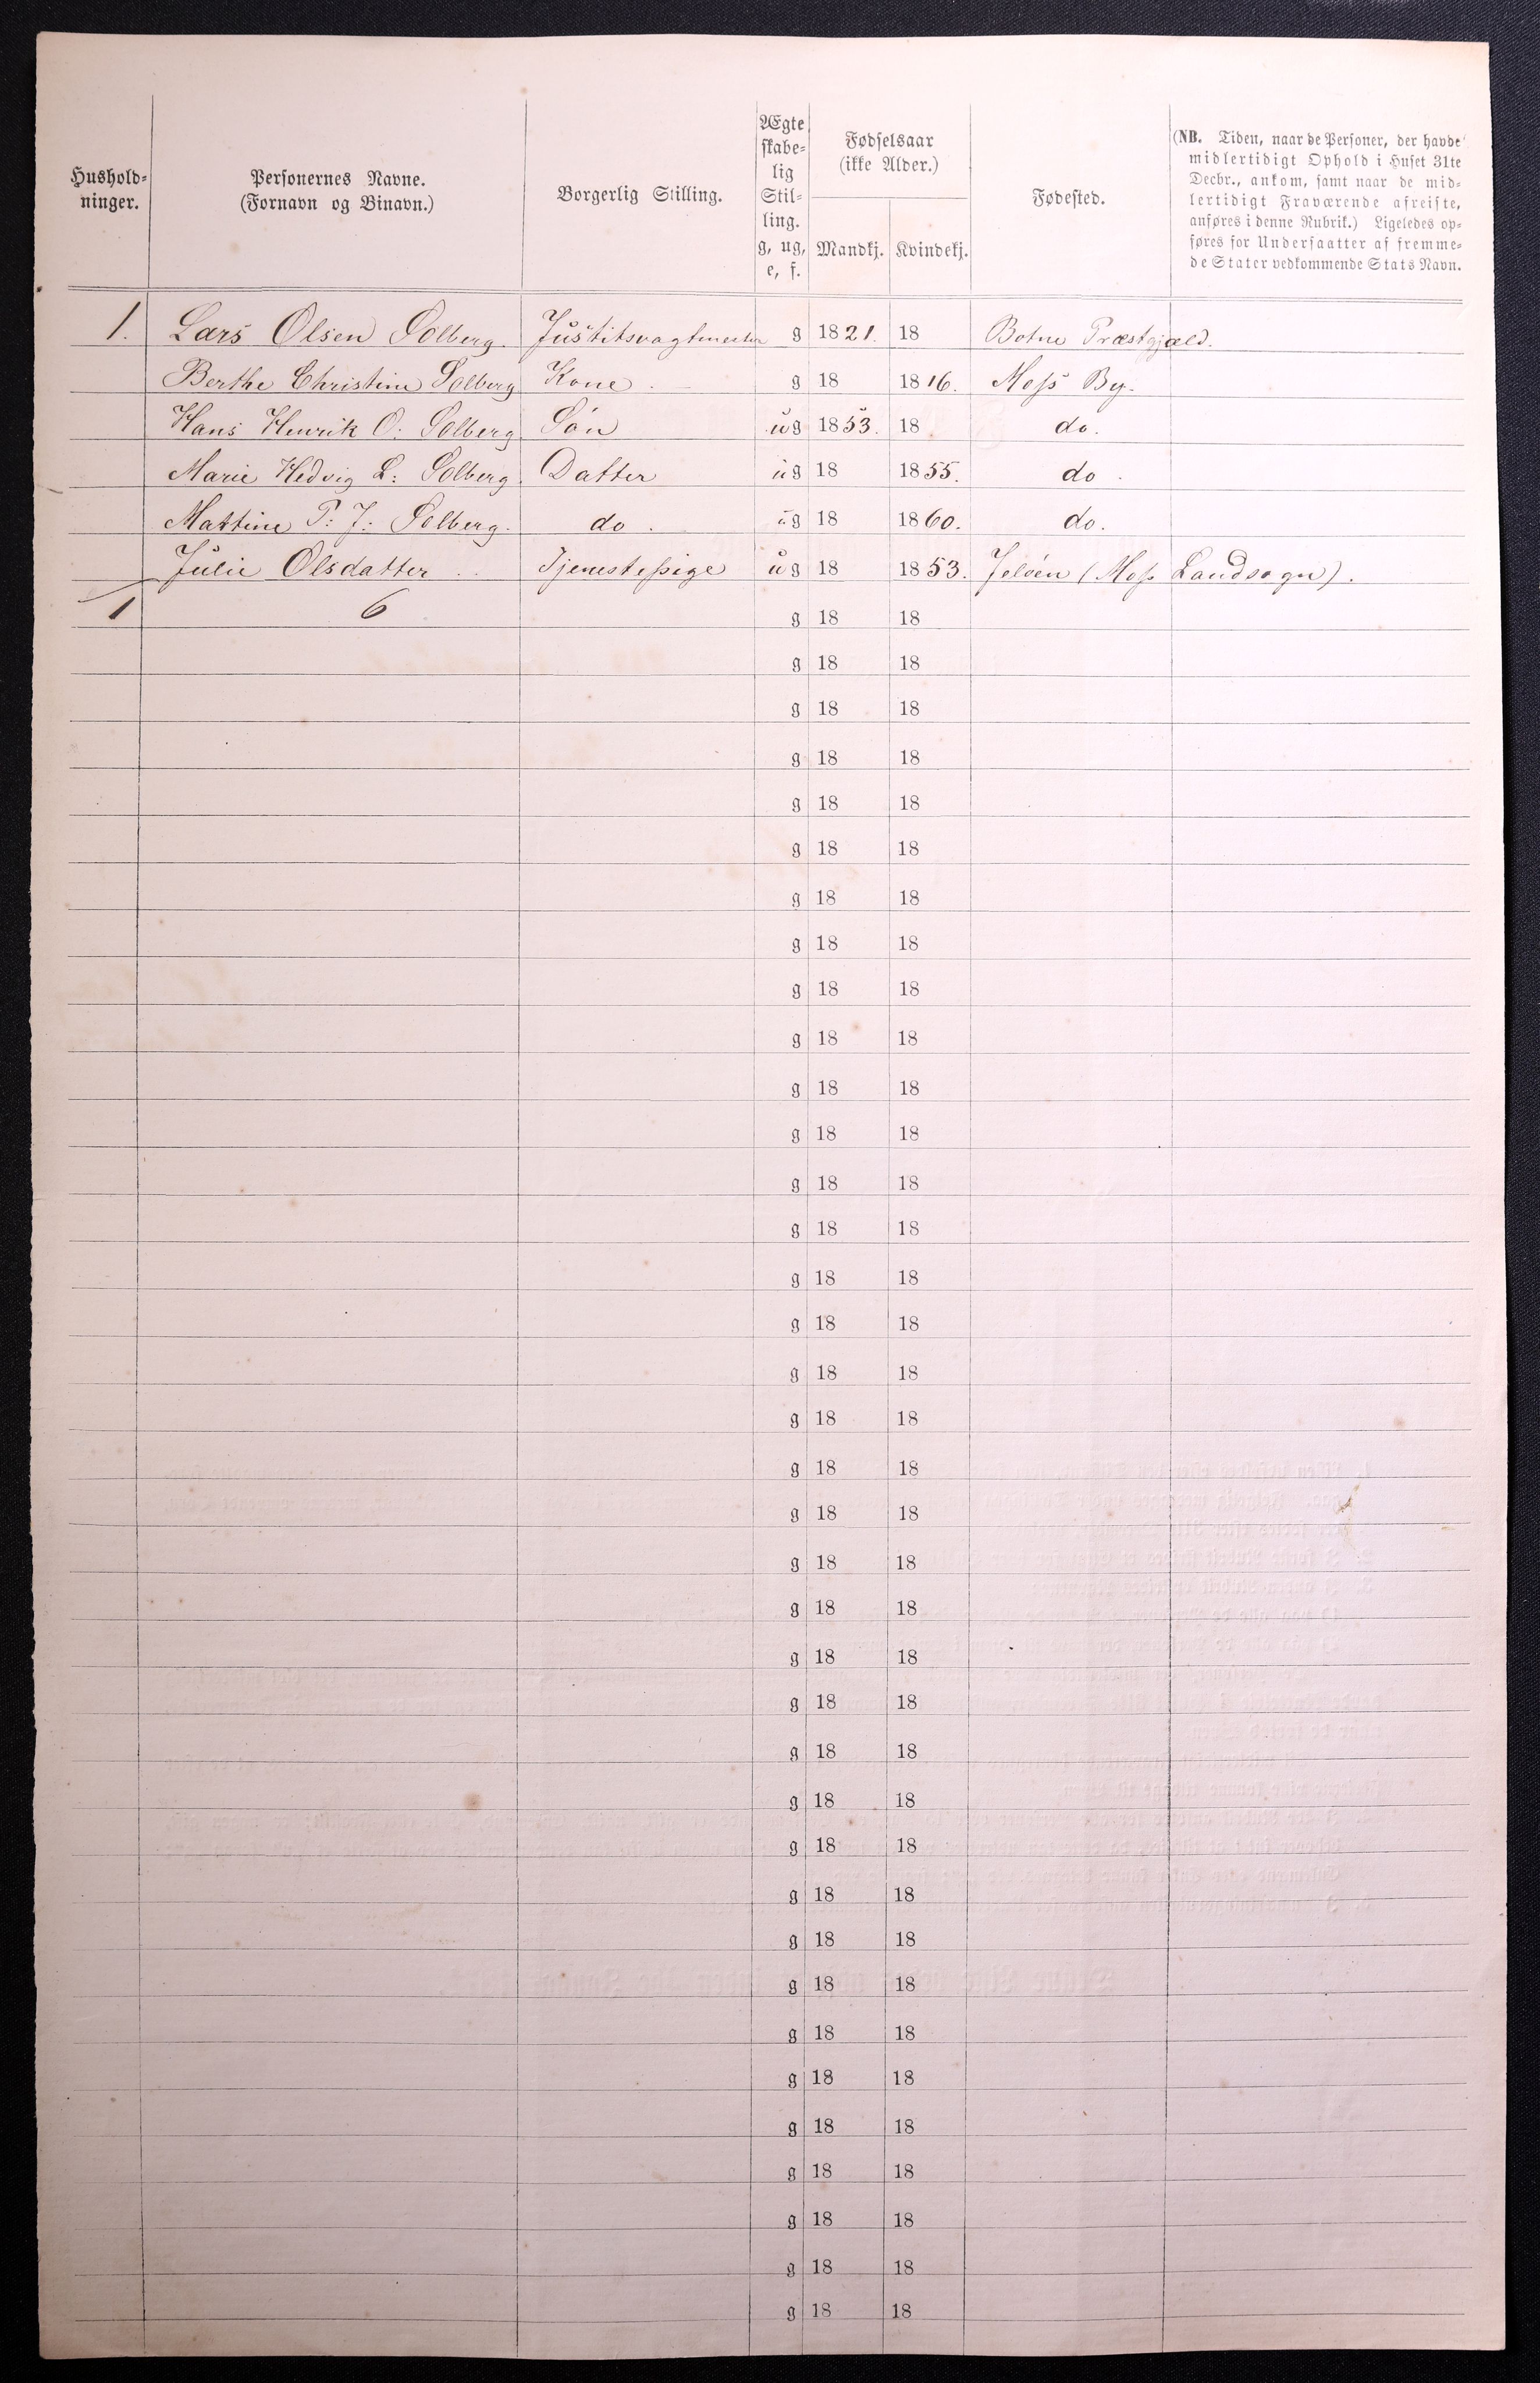 Hushold-
ninger.
Personernes Navne.
(Fornavn og Binavn.)
Borgerlig Stilling.
Ægte
skabe-
lig
Stil-
ling.
g, ug,
e, f.
Fødselsaar
(ikke Alder.)
Mandkj. Kvindekj.
Fødested.
(NB. Tiden, naar de Personer, der havde
midlertidigt Ophold i Huset 31te
Decbr., ankom, samt naar de mid-
lertidigt Fraværende afreiste,
anføres i denne Rubrik.) Ligeledes op-
føres for Undersaatter af fremme-
de Stater vedkommende Stats Navn.
1. Lars Olsen Solberg. Justitsvagtmester g 1821. 18 Botne Præstgjæld.
Berthe Christine Solberg Kone . — g 18 1816. Moss By.
Hans Henrik O: Solberg Søn ug 1853. 18 do.
Marie Hedvig L: Solberg Datter ug 18 1855. do .
Mattine P: J: Solberg. do . ug 18 1860. do.
Julie Olsdatter . . Tjenestepige ug 18 1853. Jeløen (Moss Landsogn).
1 6 g 18 18
g 18 18
g 18 18
g 18 18
g 18 18
g 18 18
g 18 18
g 18 18
g 18 18
g 18 18
g 18 18
g 18 18
g 18 18
g 18 18
g 18 18
g 18 18
g 18 18
g 18 18
g 18 18
g 18 18
g 18 18
g 18 18
g 18 18
g 18 18
g 18 18
g 18 18
g 18 18
g 18 18
g 18 18
g 18 18
g 18 18
g 18 18
g 18 18
g 18 18
g 18 18
g 18 18
g 18 18